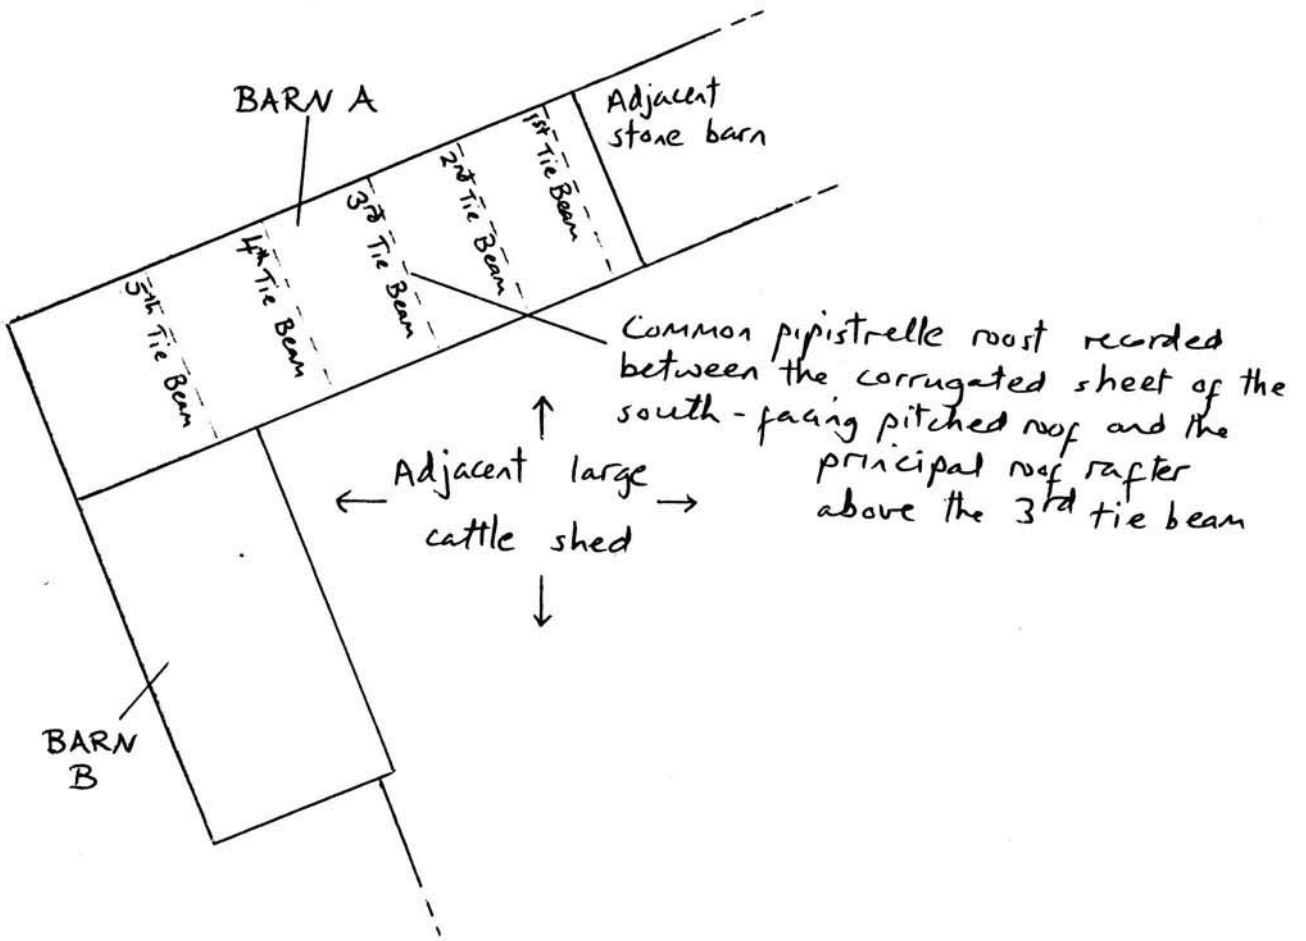 BARN A
Adjacent
stone barn
1st Tie Beam
2nd Tie Beam
3rd Tie Beam
4th Tie Beam
5th Tie Beam
Common pipistrelle roost recorded
between the corrugated sheet of the
south-facing pitched roof and the
principal roof rafter
above the 3rd tie beam
Adjacent large
cattle shed
BARN
B